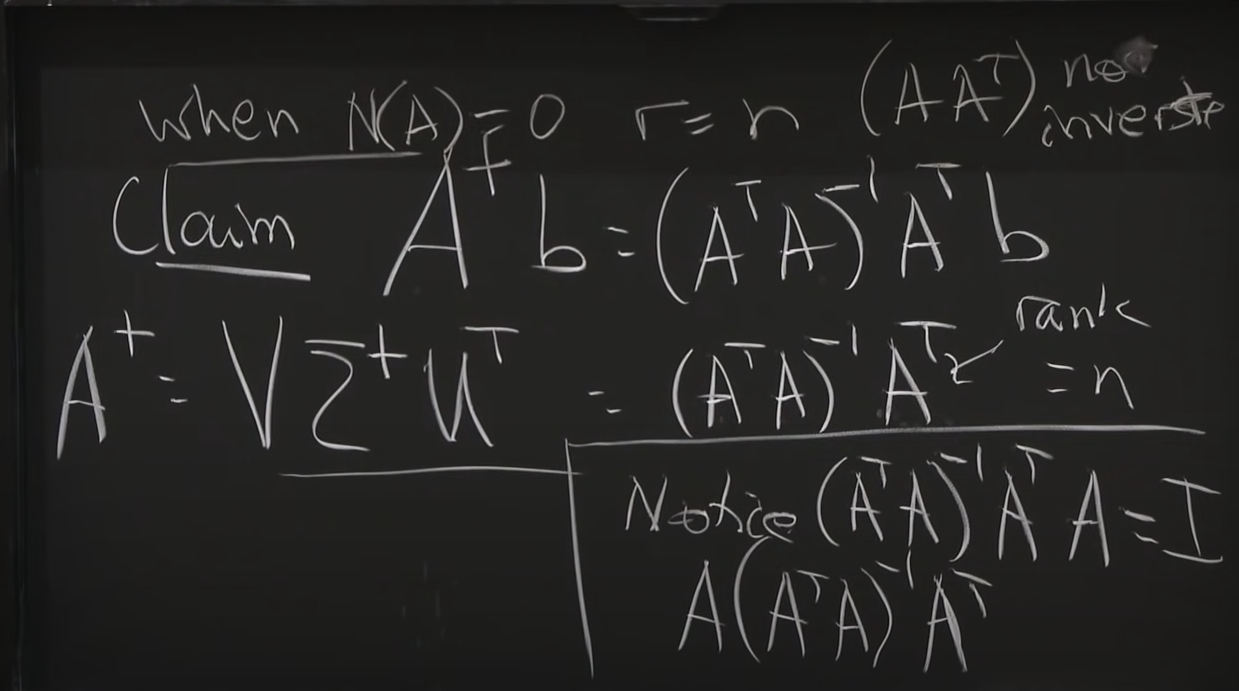 when N(A)=0 r=n (AAᵀ) no inverse
Claim A⁺b=(AᵀA)⁻¹Aᵀb
A⁺=VΣ⁺Uᵀ=(AᵀA)⁻¹Aᵀ rank=n
Notice (AᵀA)⁻¹AᵀA=I
A(AᵀA)⁻¹Aᵀ